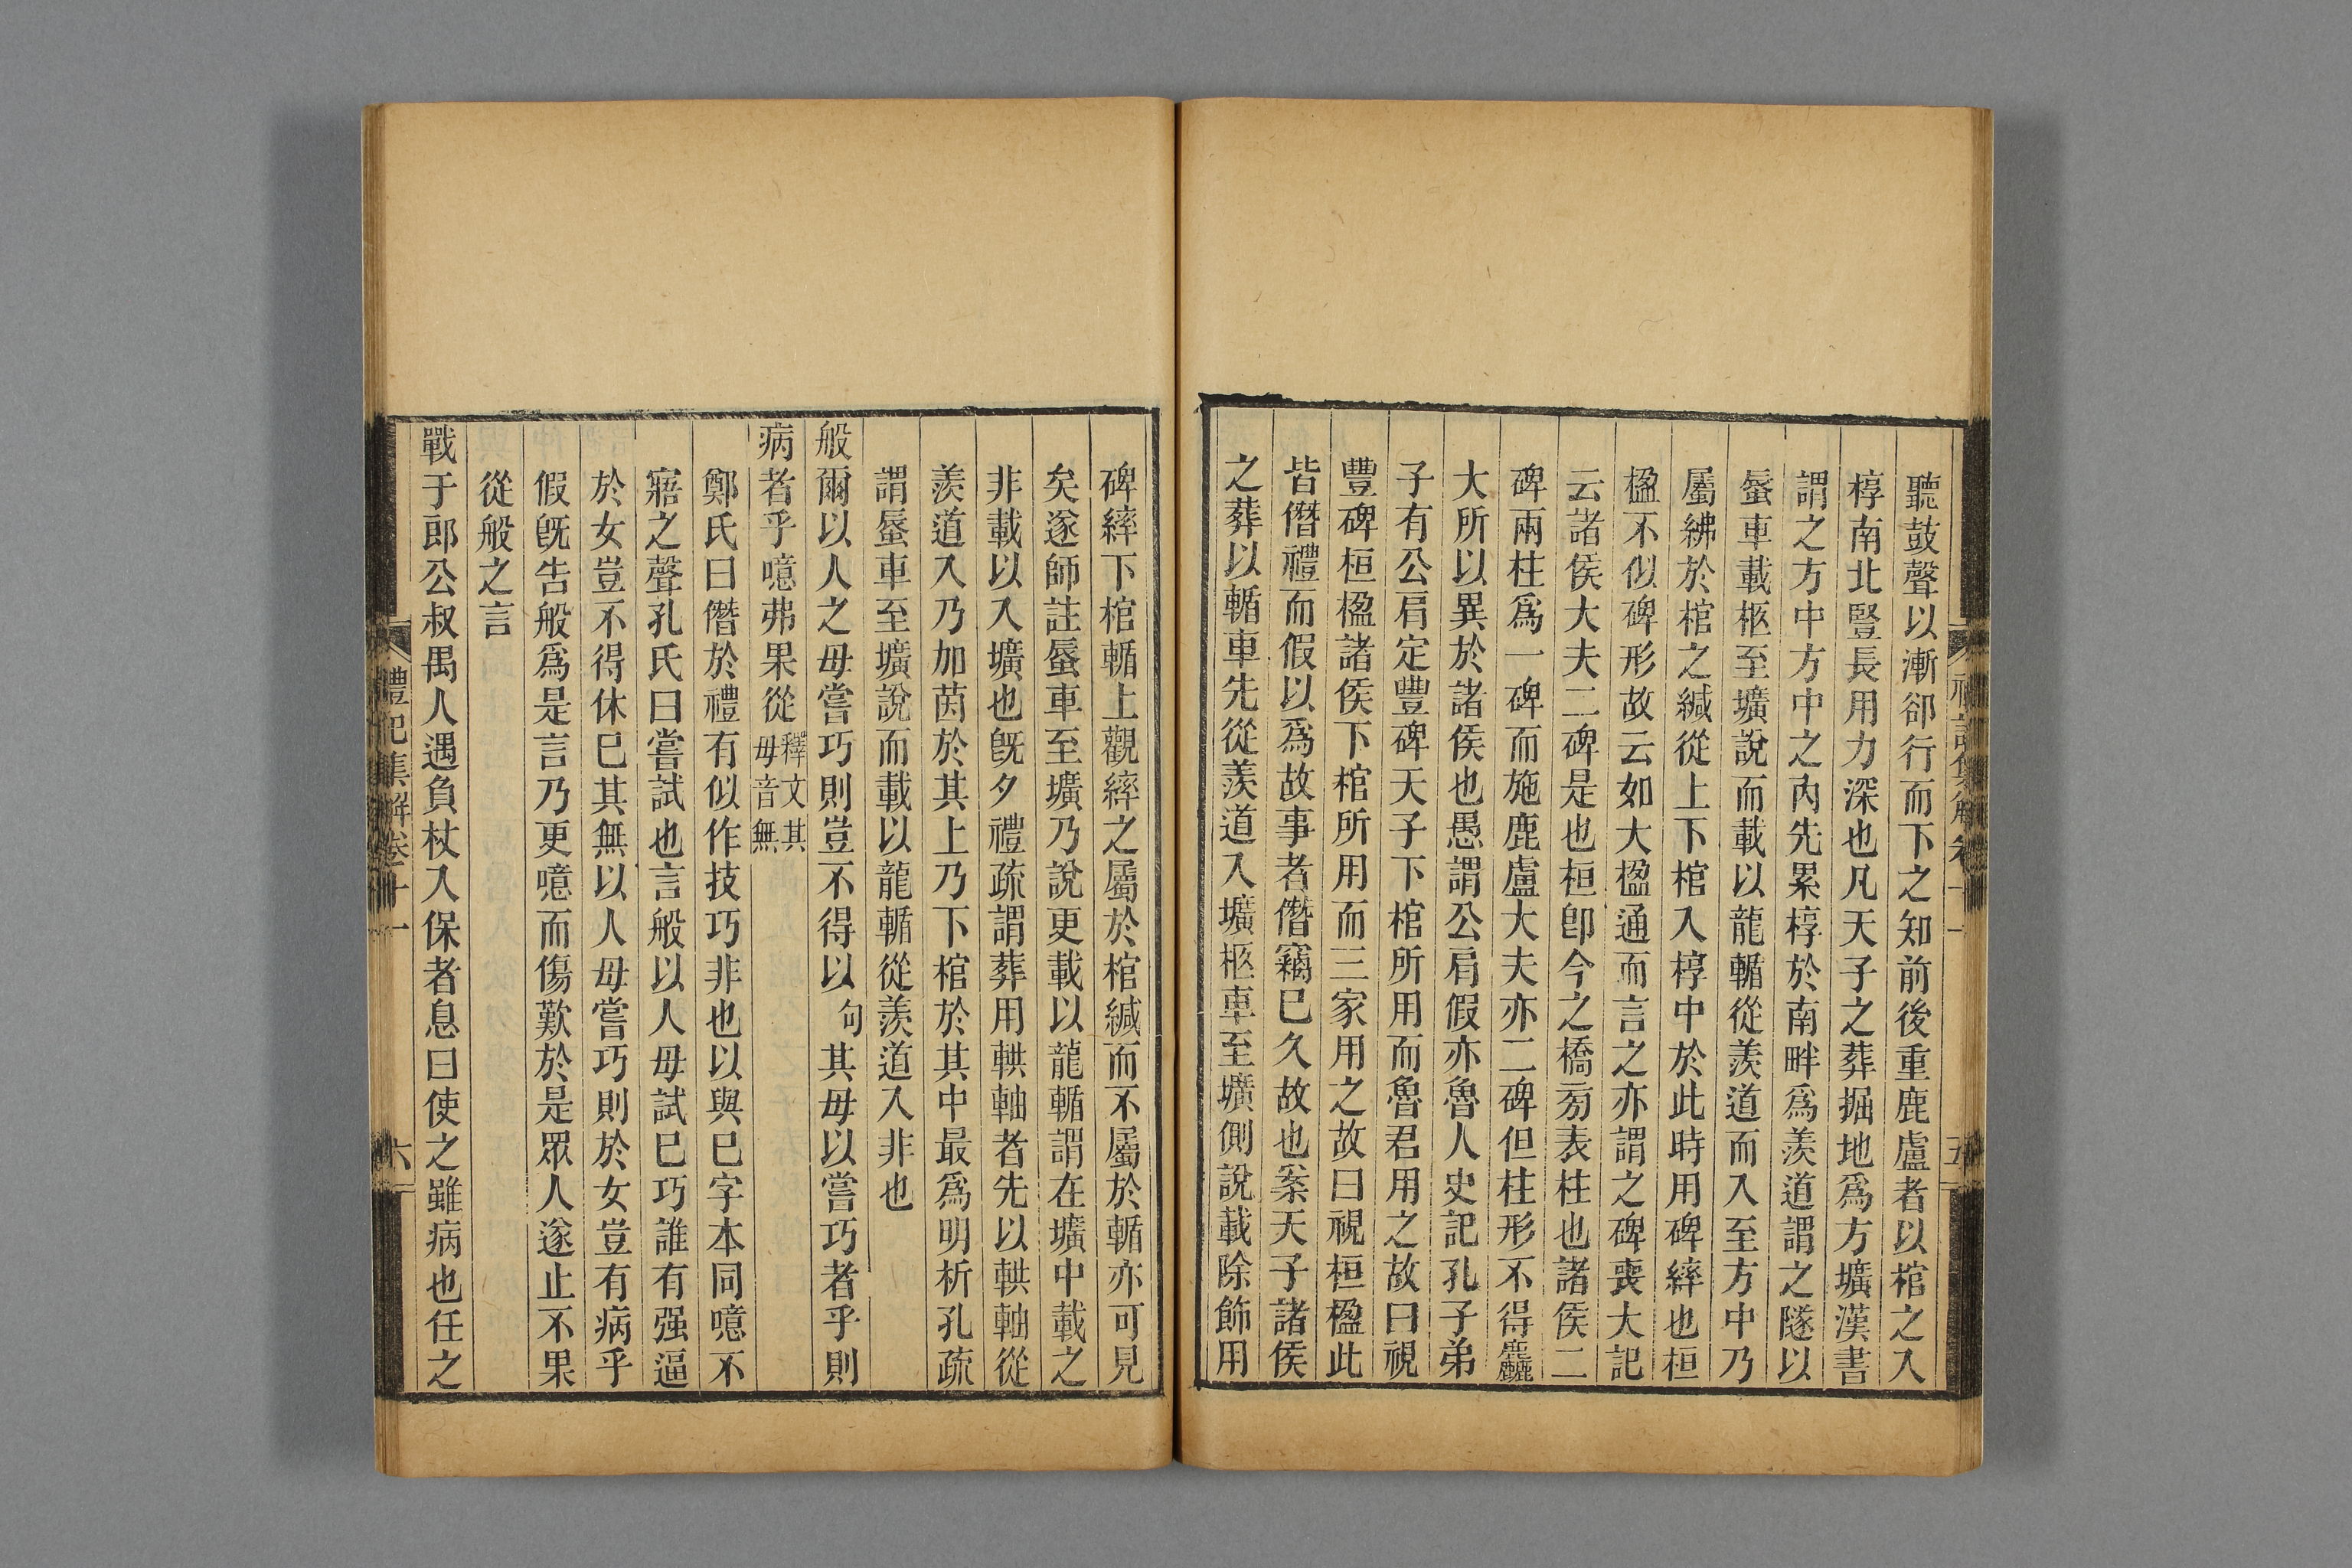 聽鼓聲以漸卻行而下之知前後重鹿盧者以棺之入
椁南北豎長用力深也凡天子之葬掘地爲方壙漢書
謂之方中方中之內先累椁於南畔爲羨道謂之隧以
蜃車載柩至壙說而載以龍輴從羨道而入至方中乃
屬紼於棺之緘從上下棺入椁中於此時用碑繂也桓
楹不似碑形故云如大楹通而言之亦謂之碑喪大記
云諸侯大夫二碑是也桓卽今之橋旁表柱也諸侯二
碑兩柱爲一碑而施鹿盧大夫亦二碑但柱形不得麤
大所以異於諸侯也愚謂公肩假亦魯人史記孔子弟
子有公肩定豐碑天子下棺所用而魯君用之故曰視
豐碑桓楹諸侯下棺所用而三家用之故曰視桓楹此
皆僭禮而假以爲故事者僭竊已久故也案天子諸侯
之葬以輴車先從羨道入壙柩車至壙側說載除飾用
碑繂下棺輴上觀繂之屬於棺緘而不屬於輴亦可見
矣遂師註蜃車至壙乃說更載以龍輴謂在壙中載之
非載以入壙也旣夕禮疏謂葬用輁軸者先以輁軸從
羨道入乃加茵於其上乃下棺於其中最爲明析孔疏
謂蜃車至壙說而載以龍輴從羨道入非也
般爾以人之母嘗巧則豈不得以句其母以嘗巧者乎則
病者乎噫弗果從釋文其母音無
鄭氏曰僭於禮有似作技巧非也以與已字本同噫不
寤之聲孔氏曰嘗試也言般以人母試已巧誰有强逼
於女豈不得休已其無以人母嘗巧則於女豈有病乎
假旣告般爲是言乃更噫而傷歎於是眾人遂止不果
從般之言
戰于郎公叔禺人遇負杖入保者息曰使之雖病也任之
禮記集解卷十一
六